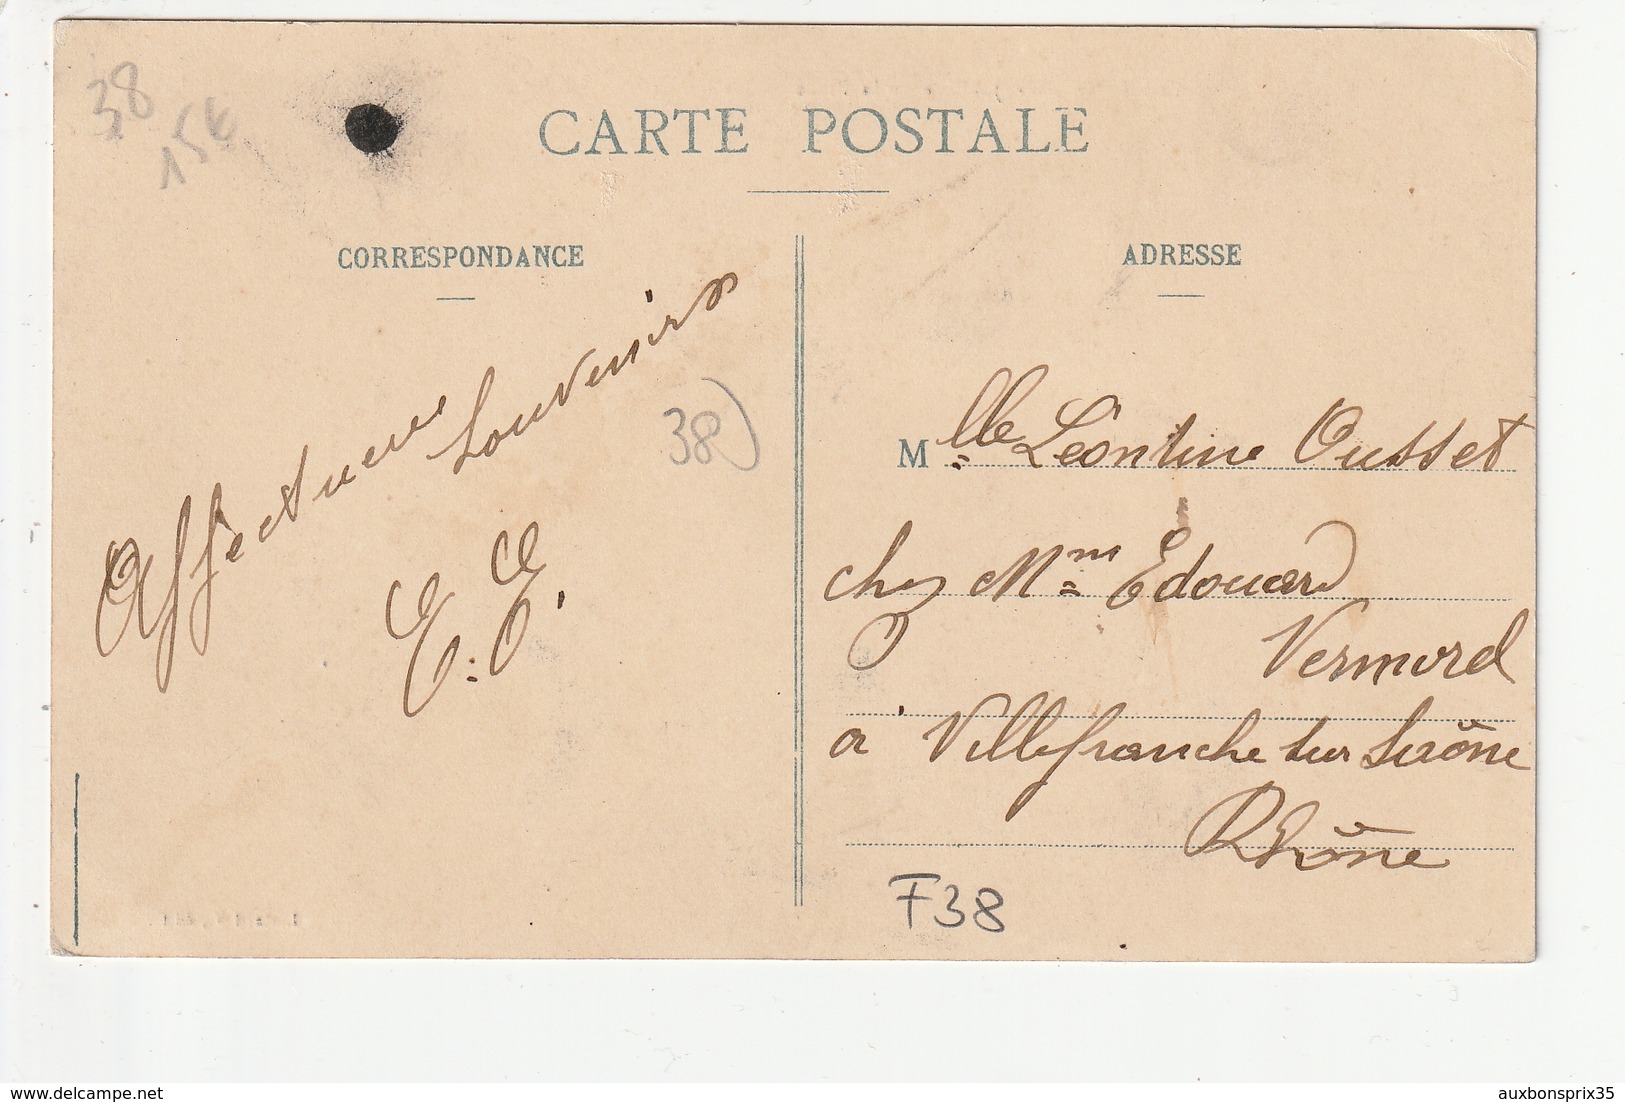 38
15€
CARTE POSTALE
CORRESPONDANCE
Affectueux
Souvenirs
E. E.
38)
ADRESSE
Mlle Léontine Ousset
chez Mme Edouard
Vermorel
à Villefranche sur Saône
Rhône
F38
auxbonsprix35